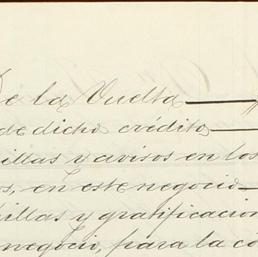 De la Vuelta
de dicho crédito
illas y avisos en los
os, en este negocio
illas y gratificacion
negocio, para la co